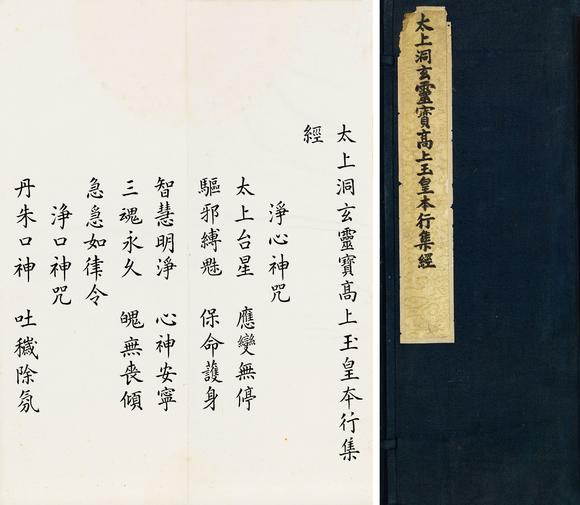 太上洞玄靈寶高上玉皇本行集經
太上洞玄靈寶高上玉皇本行集
經
淨心神咒
太上台星　應變無停
驅邪縛魅　保命護身
智慧明淨　心神安寧
三魂永久　魄無喪傾
急急如律令
淨口神咒
丹朱口神　吐穢除氛